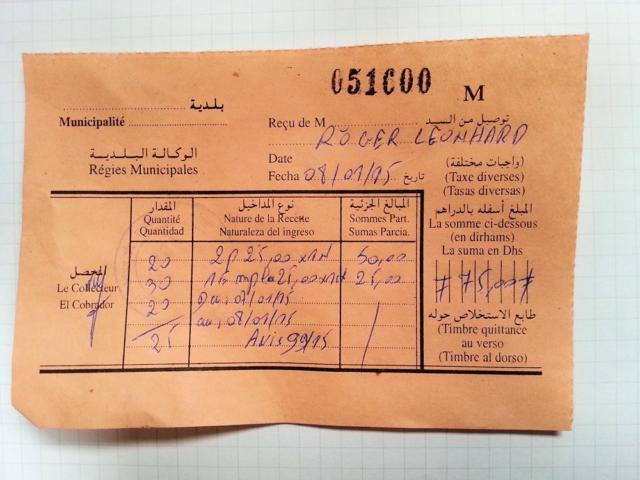 051600
M
بلدية
Municipalité
توصيل من السيد
Reçu de M
ROGER LEONHARD
الوكالة البلدية
Régies Municipales
Date
Fecha 08/01/15 تاريخ
(واجبات مختلفة)
(Taxe diverses)
(Tasas diversas)
المقدار
Quantité
Quantidad
نوع المداخيل
Nature de la Recette
Naturaleza del ingreso
المبالغ الجزئية
Sommes Part.
Sumas Parcia.
المبلغ أسفله بالدراهم
La somme ci-dessous
(en dirhams)
La suma en Dhs
# 75,00 #
المحصل
Le Collecteur
El Cobrador
20 2p 25,00 x1N 50,00
30 25,00 x1N 25,00
20 Du, 07/01/15
au, 08/01/15
21 Avis 99/15
طابع الاستخلاص حوله
(Timbre quittance
au verso
(Timbre al dorso)